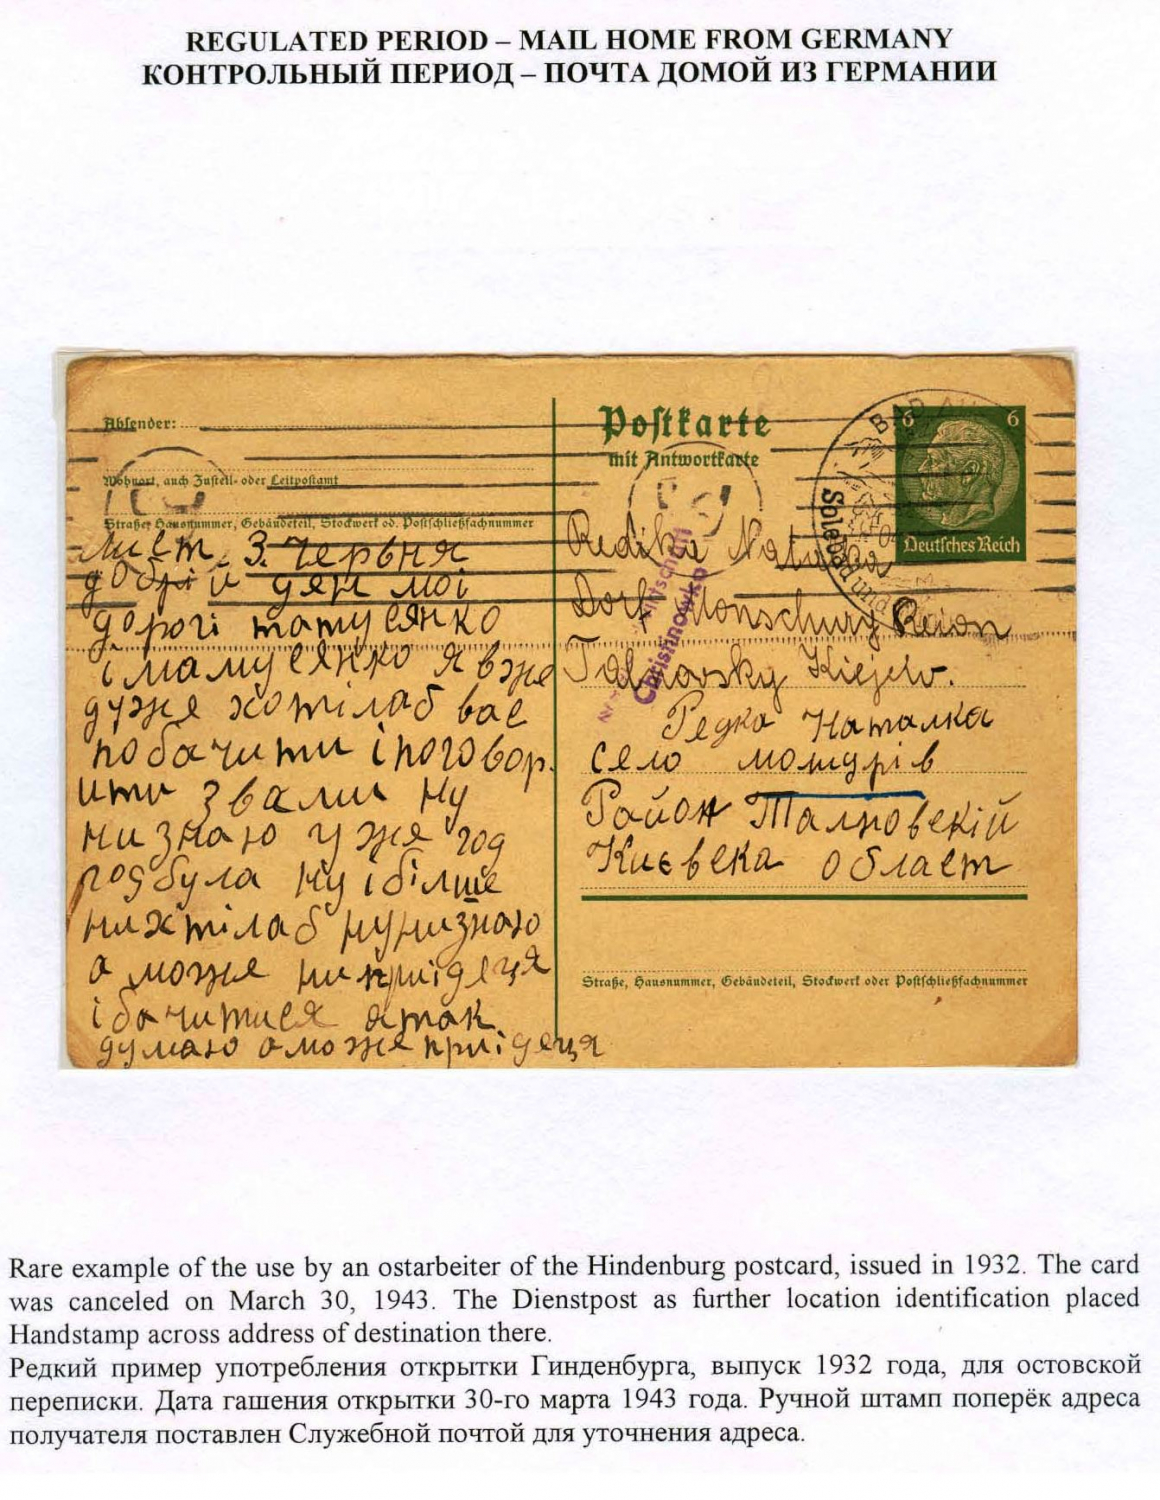 REGULATED PERIOD – MAIL HOME FROM GERMANY
КОНТРОЛЬНЫЙ ПЕРИОД – ПОЧТА ДОМОЙ ИЗ ГЕРМАНИИ
Absender:
Wohnort, auch Zustell- oder Leitpostamt
Straße, Hausnummer, Gebäudeteil, Stockwerk od. Postschließfachnummer
лист 3 Червня
добрій ден мої
дорогі татусянко
і мамусянко я вже
дуже хотілаб вас
побачити і поговор.
ити звами ну
ни знаю уже год
год була ну і більше
нихтілаб ну низнаю
а може ни приідеця
і бачитися атак
думаю а може приідеця
Postkarte
mit Antwortkarte
6 6
Deutsches Reich
BAD
Solebad und
Christinowka
Redika Natalka
Dorf Monschury Reion
Talnowsky Kiejew.
Редка Наталка
село мошурів
Район Талновскій
Києвска област
Straße, Hausnummer, Gebäudeteil, Stockwerk oder Postschließfachnummer
Rare example of the use by an ostarbeiter of the Hindenburg postcard, issued in 1932. The card
was canceled on March 30, 1943. The Dienstpost as further location identification placed
Handstamp across address of destination there.
Редкий пример употребления открытки Гинденбурга, выпуск 1932 года, для остовской
переписки. Дата гашения открытки 30-го марта 1943 года. Ручной штамп поперёк адреса
получателя поставлен Служебной почтой для уточнения адреса.